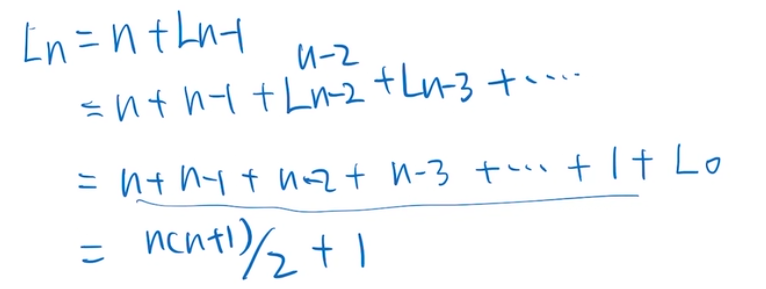 Ln = n + Ln-1
n-2
= n + n-1 + Ln-2 + Ln-3 + ....
= n + n-1 + n-2 + n-3 + ... + 1 + L0
= n(n+1)/2 + 1